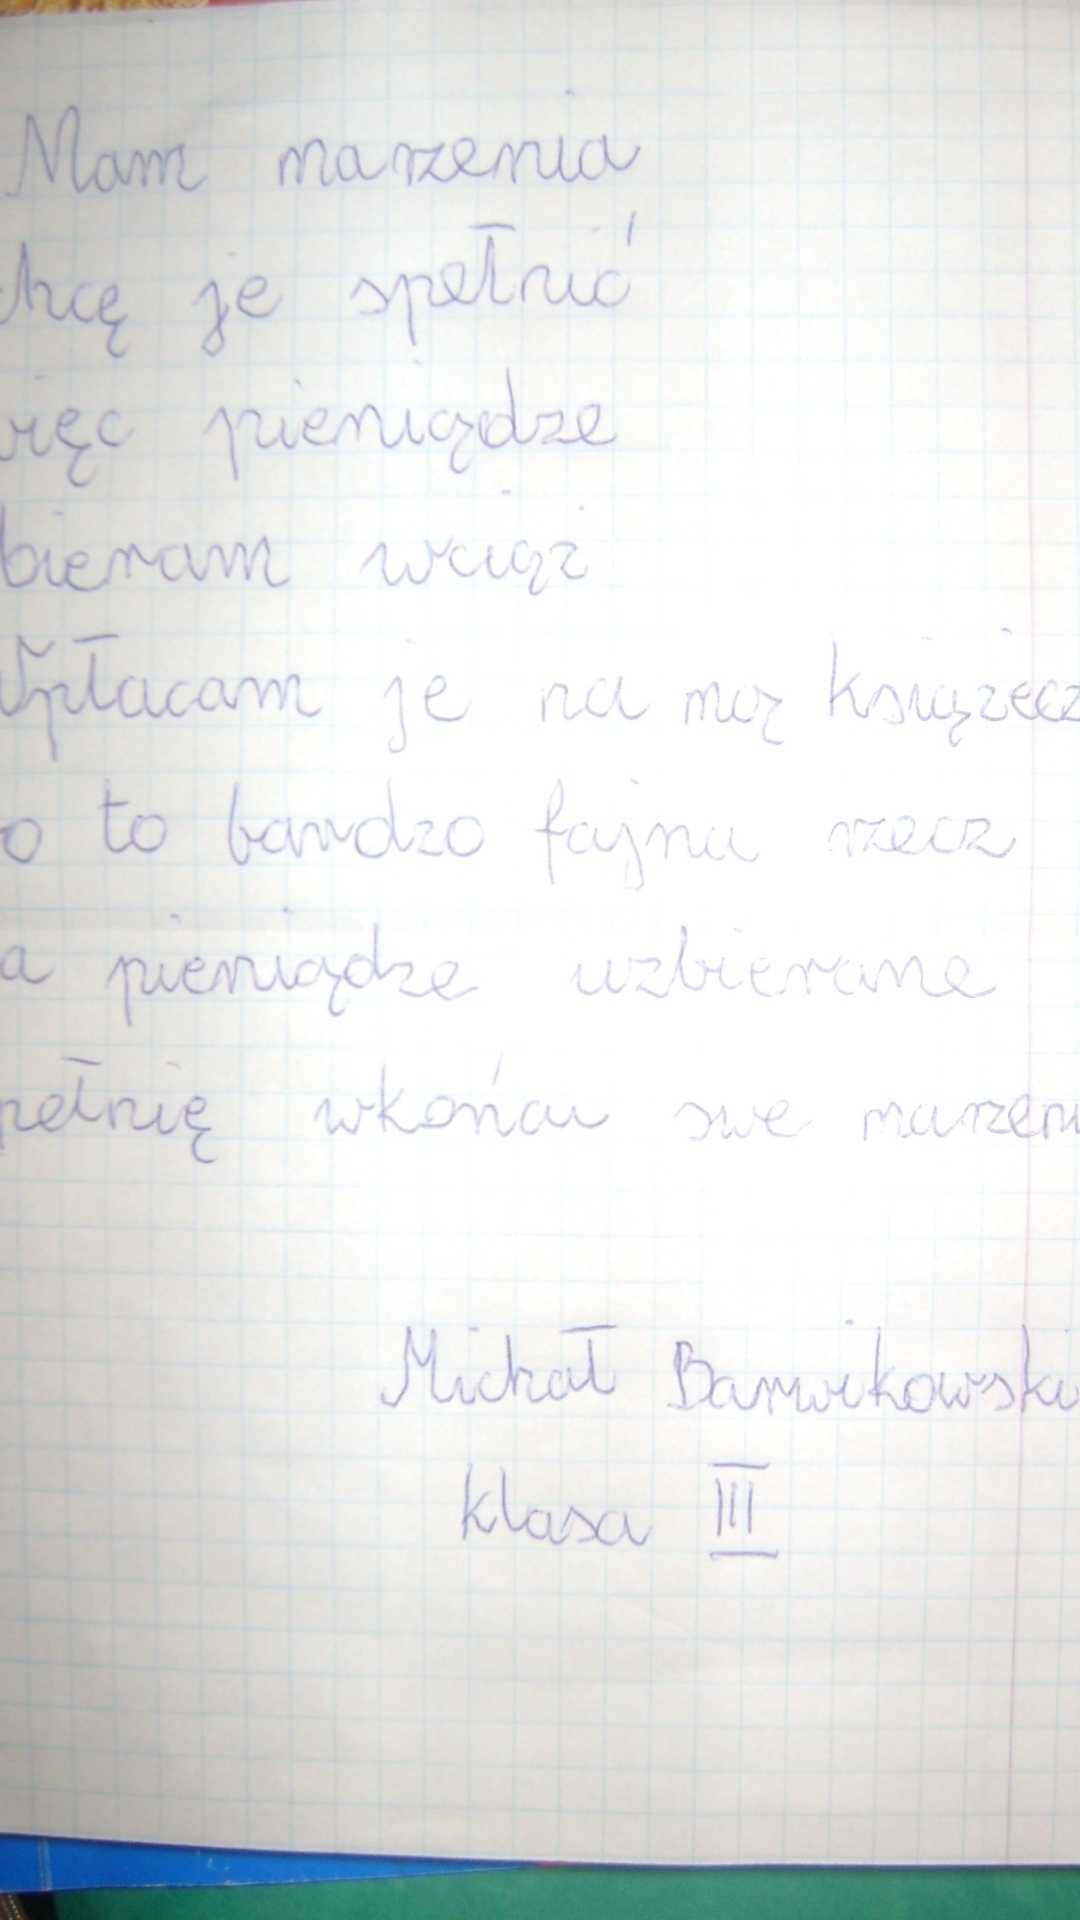 Mam marzenia
chcę je spełnić
więc pieniądze
zbieram wciąż
Wpłacam je na mą książecz
bo to bardzo fajna rzecz
a pieniądze uzbierane
pełnię wkońcu swe marzeni
Michał Barwikowski
klasa III